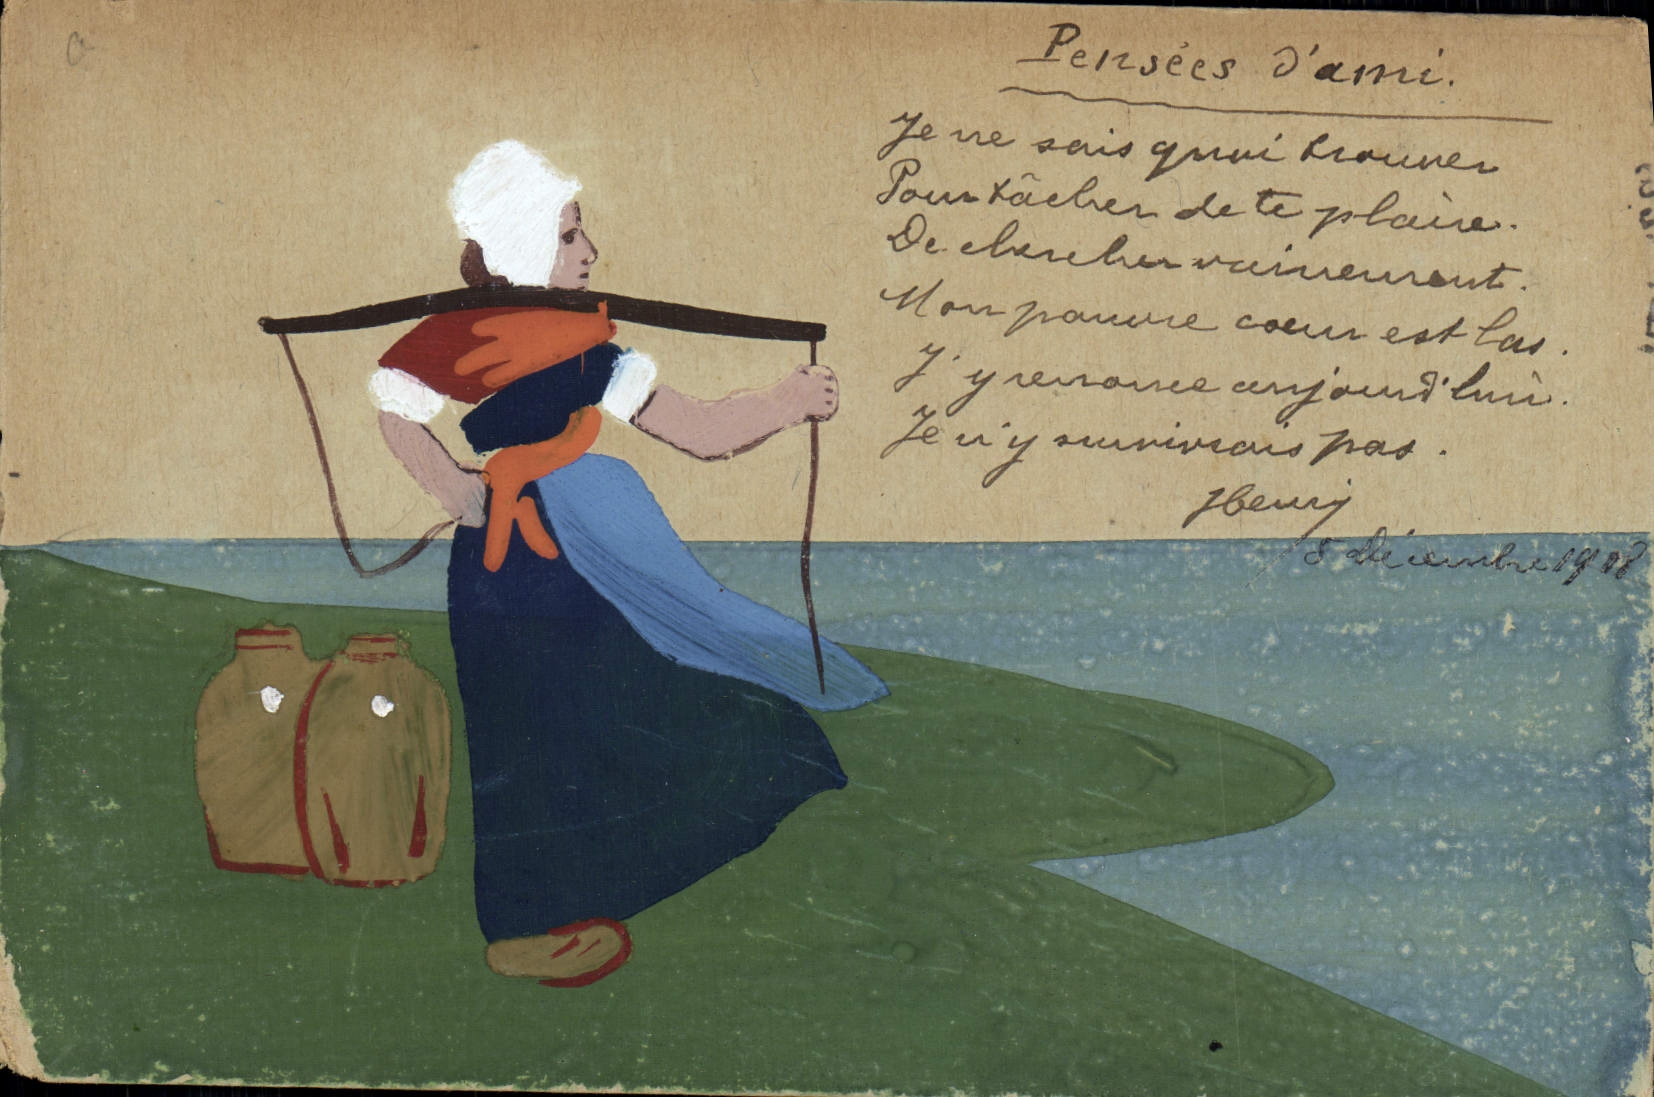 Pensées d'ami.
Je ne sais quoi trouver
Pour tâcher de te plaire.
De chercher vainement.
Mon pauvre cœur est las.
J'y renonce aujourd'hui.
Je n'y survivrais pas.
Henry
8 Décembre 1908